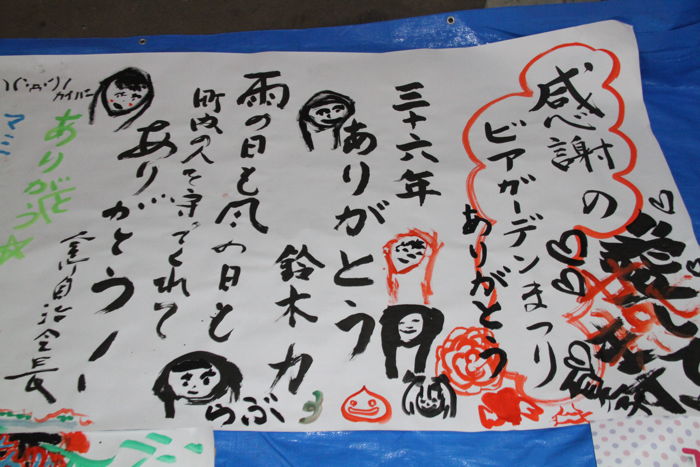 感謝の
ビアガーデンまつり
ありがとう
三十六年
ありがとう
鈴木力
雨の日も風の日も
町内の人を守てくれて
ありがとうー
自治会長
ありがとう☆
マミ
らぶ